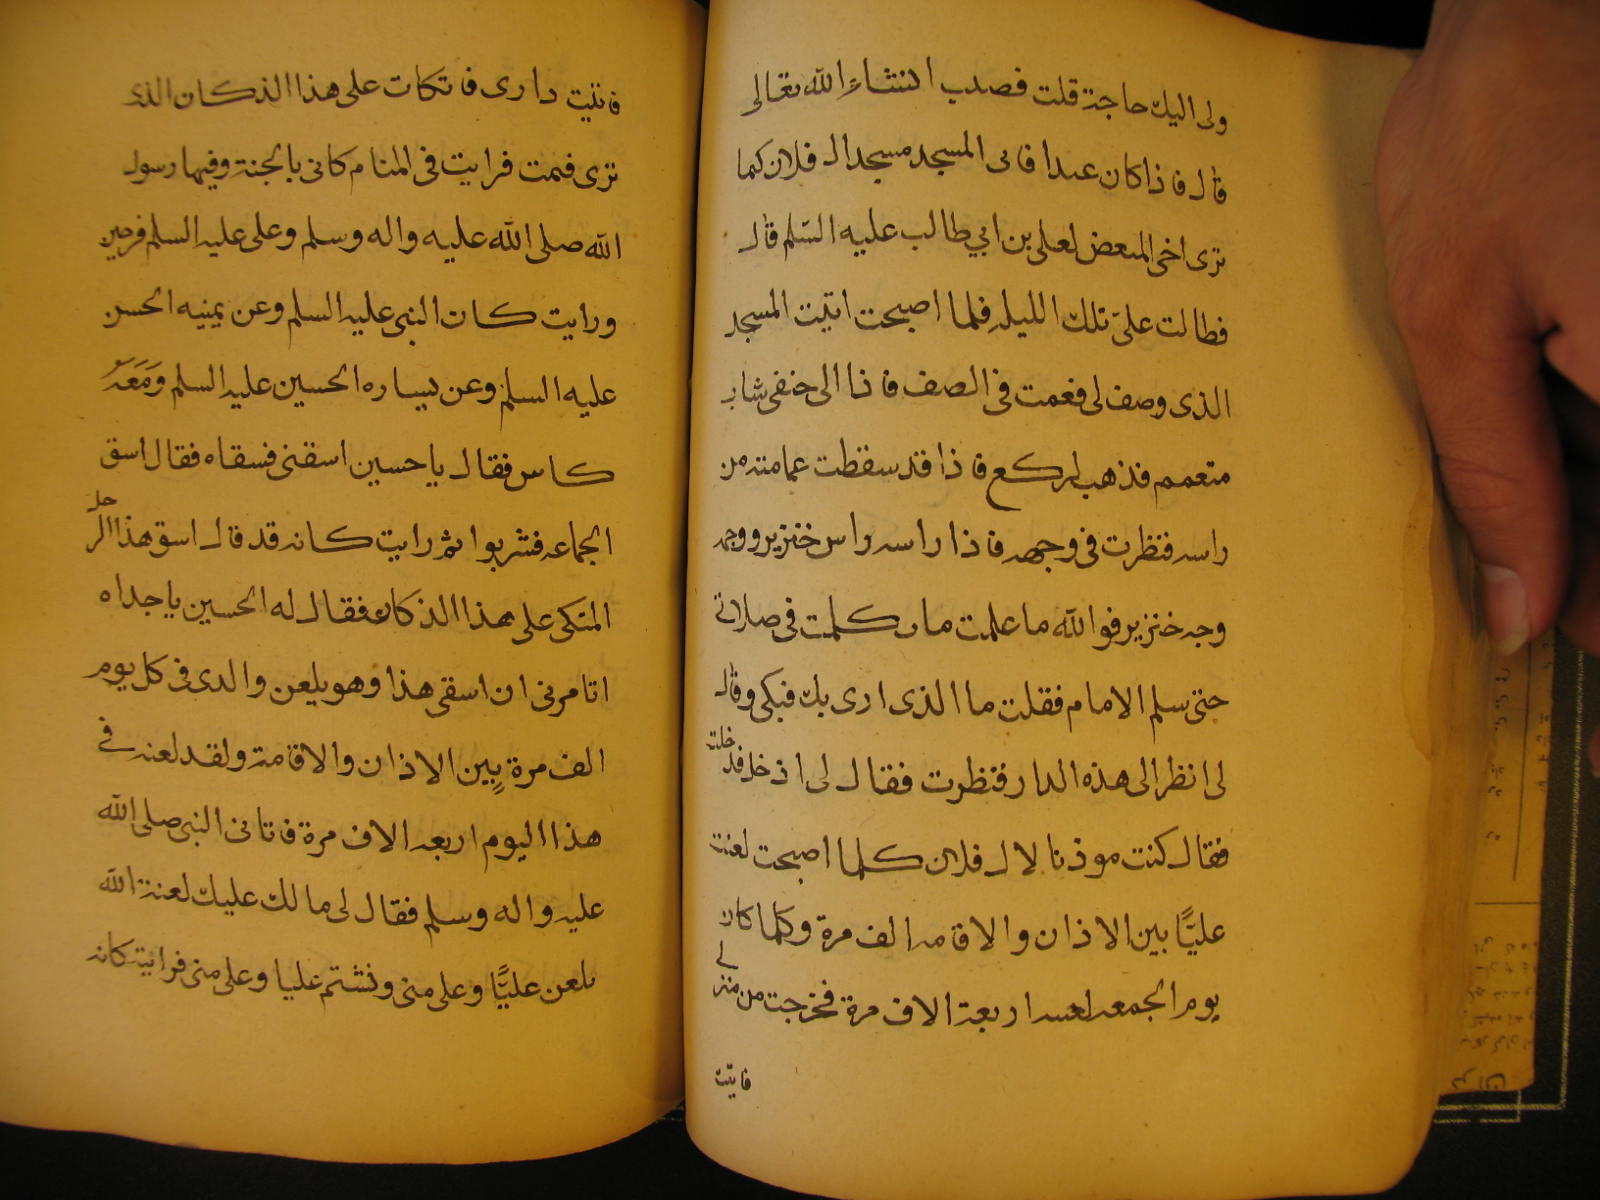 ولى اليك حاجة قلت فصدب انشاء الله تعالى
قال فاذا كان عدا فاىى المسجد مسجد ال فلان كما
ترى اخى المبعض لعلى بن ابي طالب عليه السّلم قال
فطالت علىّ تلك الليله فلما اصبحت اتيت المسجد
الذى وصف لى فقمت فى الصف فاذا الى جنفى شاب
متعمم فذهب لركع فاذا قد سقطت عمامته من
راسه فنظرت فى وجهه فاذا راسه راس خنزير ووجهه
وجه خنزير فوالله ما علمت ما تكلمت فى صلاتى
حتى سلم الامام فقلت ما الذى ارى بك فبكى وقال
لى انظر الى هذه الدار فنظرت فقال لى ادخل فدخلت
فقال كنت موذنا لال فلان كلما اصبحت لعنت
عليًّا بين الاذان والاقامه الف مرة وكلما كان
يوم الجمعه لعنته اربعة الاف مرة فخرجت من منزلى
فاتيت
فاتيت دارى فاتكات على هذا الدكان الذى
ترى فنمت فرايت فى المنام كانى بالجنة وفيها رسول
الله صلى الله عليه واله وسلم وعلى عليه السلم فرحين
ورايت كان النبى عليه السلم وعن يمنيه الحسن
عليه السلم وعن يساره الحسين عليه السلم وَمَعَهُ
كاس فقال يا حسين اسقنى فسقاه فقال اسق
الجماعه فشربوا ثم رايت كانه قد قال اسق هذا الرجل
المتكى على هذا الدكان فقال له الحسين يا جداه
اتامرنى ان اسقى هذا وهو يلعن والدى فى كل يوم
الف مرة بين الاذان والاقامة ولقد لعنه فى
هذا اليوم اربعه الاف مرة فاتانى النبى صلى الله
عليه واله وسلم فقال لى مالك عليك لعنة الله
تلعن عليًّا وعلى منى وتشتم عليا وعلى منى فرايت كانه